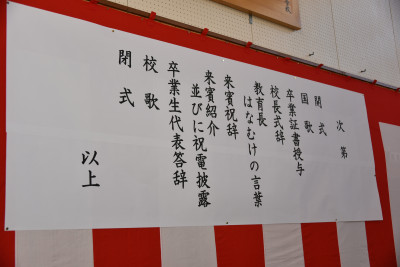 次第
開式
国歌
卒業証書授与
校長式辞
教育長
はなむけの言葉
来賓祝辞
来賓紹介
並びに祝電披露
卒業生代表答辞
校歌
閉式
以上